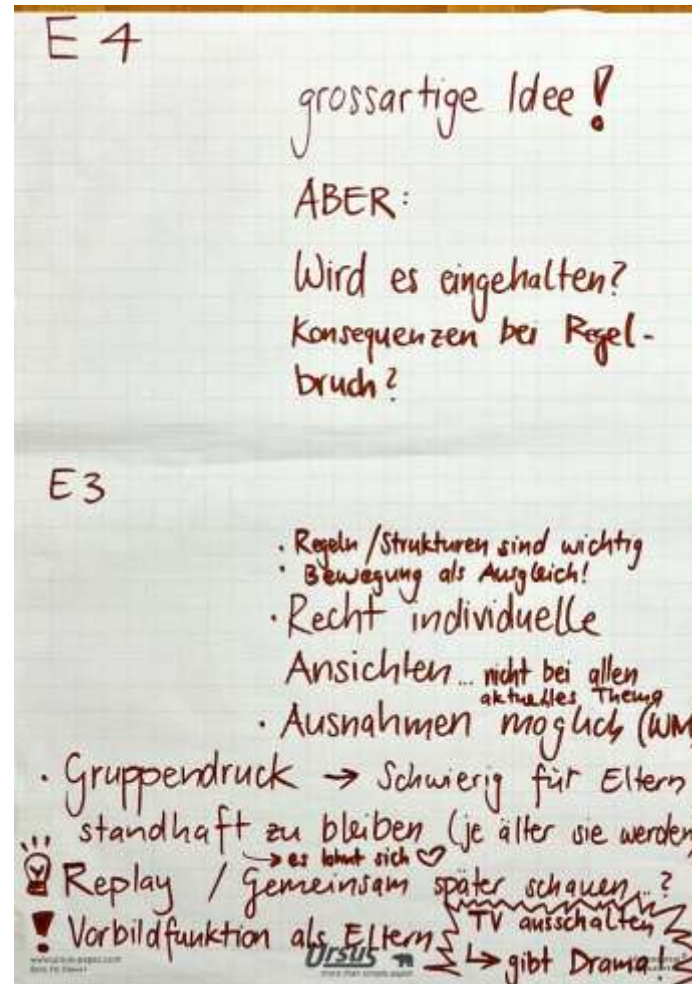 E 4
grossartige Idee!
ABER:
Wird es eingehalten?
Konsequenzen bei Regel-
bruch?
E3
• Regeln/Strukturen sind wichtig
• Bewegung als Ausgleich!
• Recht individuelle
Ansichten... nicht bei allen
aktuelles Thema
• Ausnahmen möglich (WM
• Gruppendruck → Schwierig für Eltern
standhaft zu bleiben (je älter sie werden
→ es lohnt sich ♡
Replay / Gemeinsam später schauen...?
! Vorbildfunktion als Eltern
TV ausschalten
↳ gibt Drama!
www.ursus-paper.com
Ursus
more than simple paper